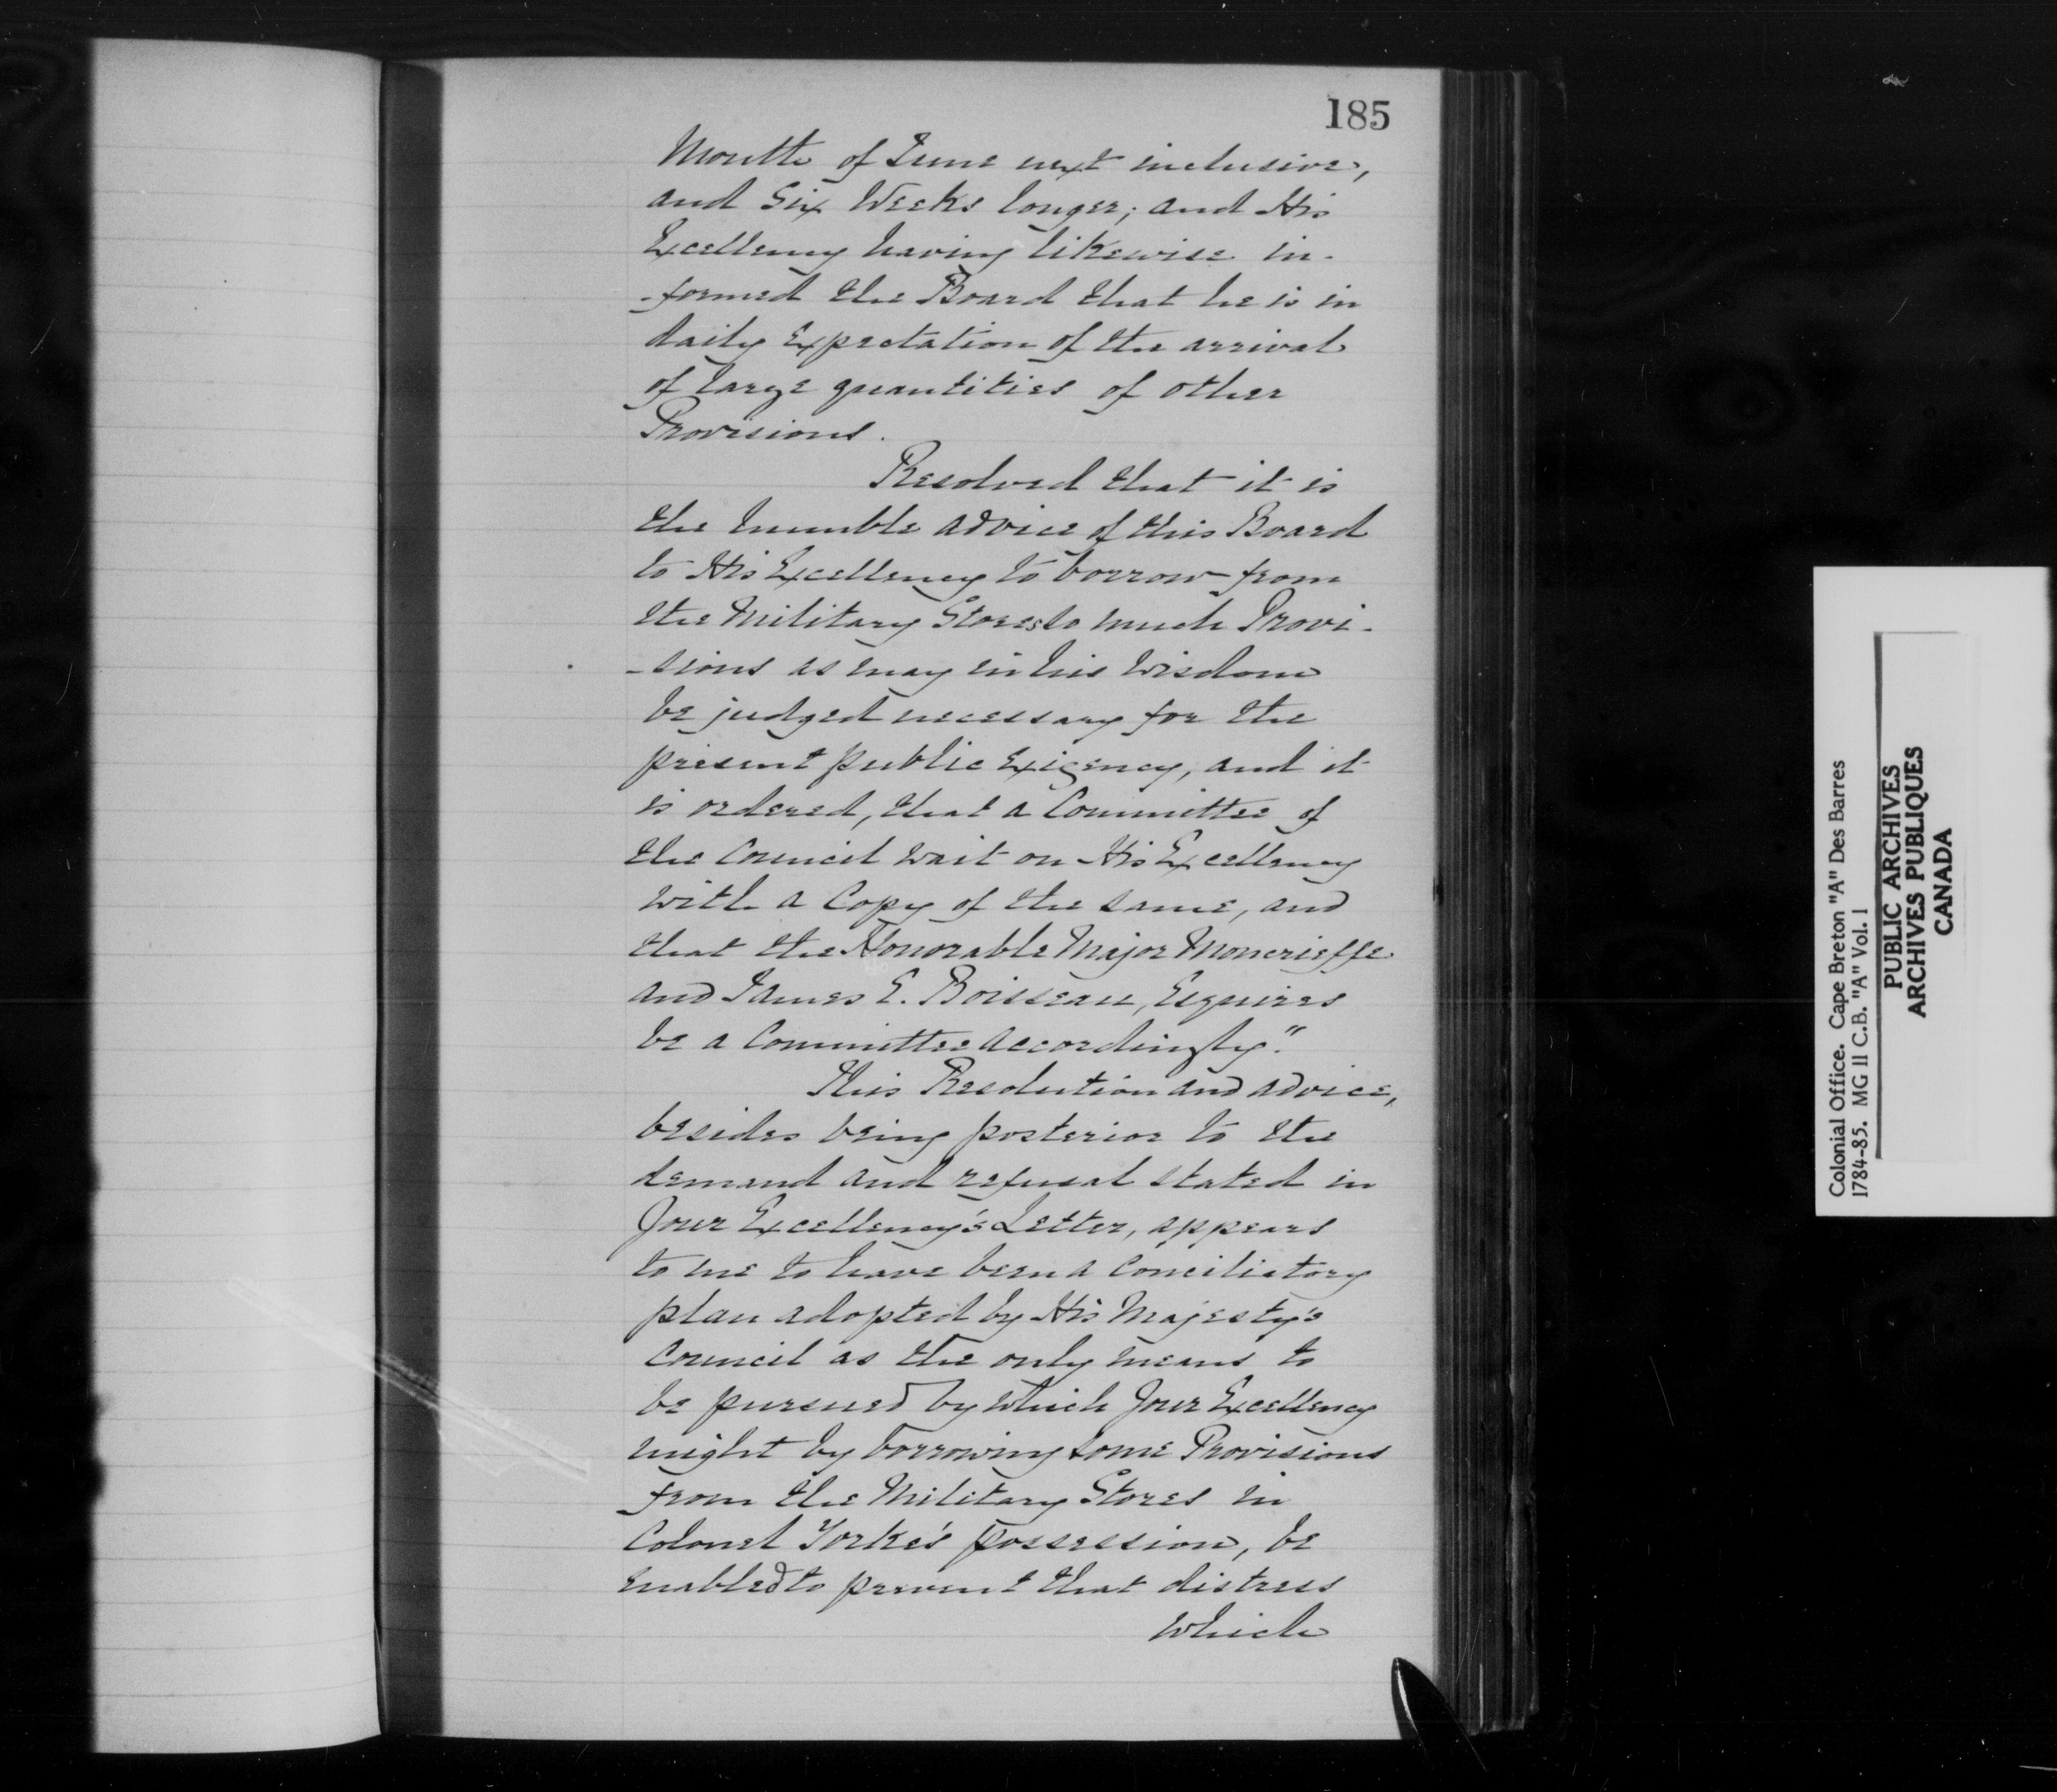 185
Month of June next inclusive,
and Six Weeks longer; and His
Excellency having likewise in-
-formed the Board that he is in
daily Expectation of the arrival
of large quantities of other
Provisions.
Resolved that it is
the humble advice of this Board
to His Excellency to borrow from
the Military Stores so much Provi-
-sions as may in his Wisdom
be judged necessary for the
present public Exigency, and it
is ordered, that a Committee of
the Council wait on His Excellency
with a Copy of the same, and
that the Honorable Major Moncrieffe
and James E. Boisseau, Esquires
be a Committee accordingly."
This Resolution and advice,
besides being posterior to the
demand and refusal stated in
Your Excellency's Letter, appears
to me to have been a Conciliatory
plan adopted by His Majesty's
Council as the only means to
be pursued by which Your Excellency
might by borrowing some Provisions
from the Military Stores in
Colonel Yorke's possession, be
enabled to prevent that distress
which
Colonial Office. Cape Breton "A" Des Barres
1784-85. MG 11 C.B. "A" Vol. 1
PUBLIC ARCHIVES
ARCHIVES PUBLIQUES
CANADA